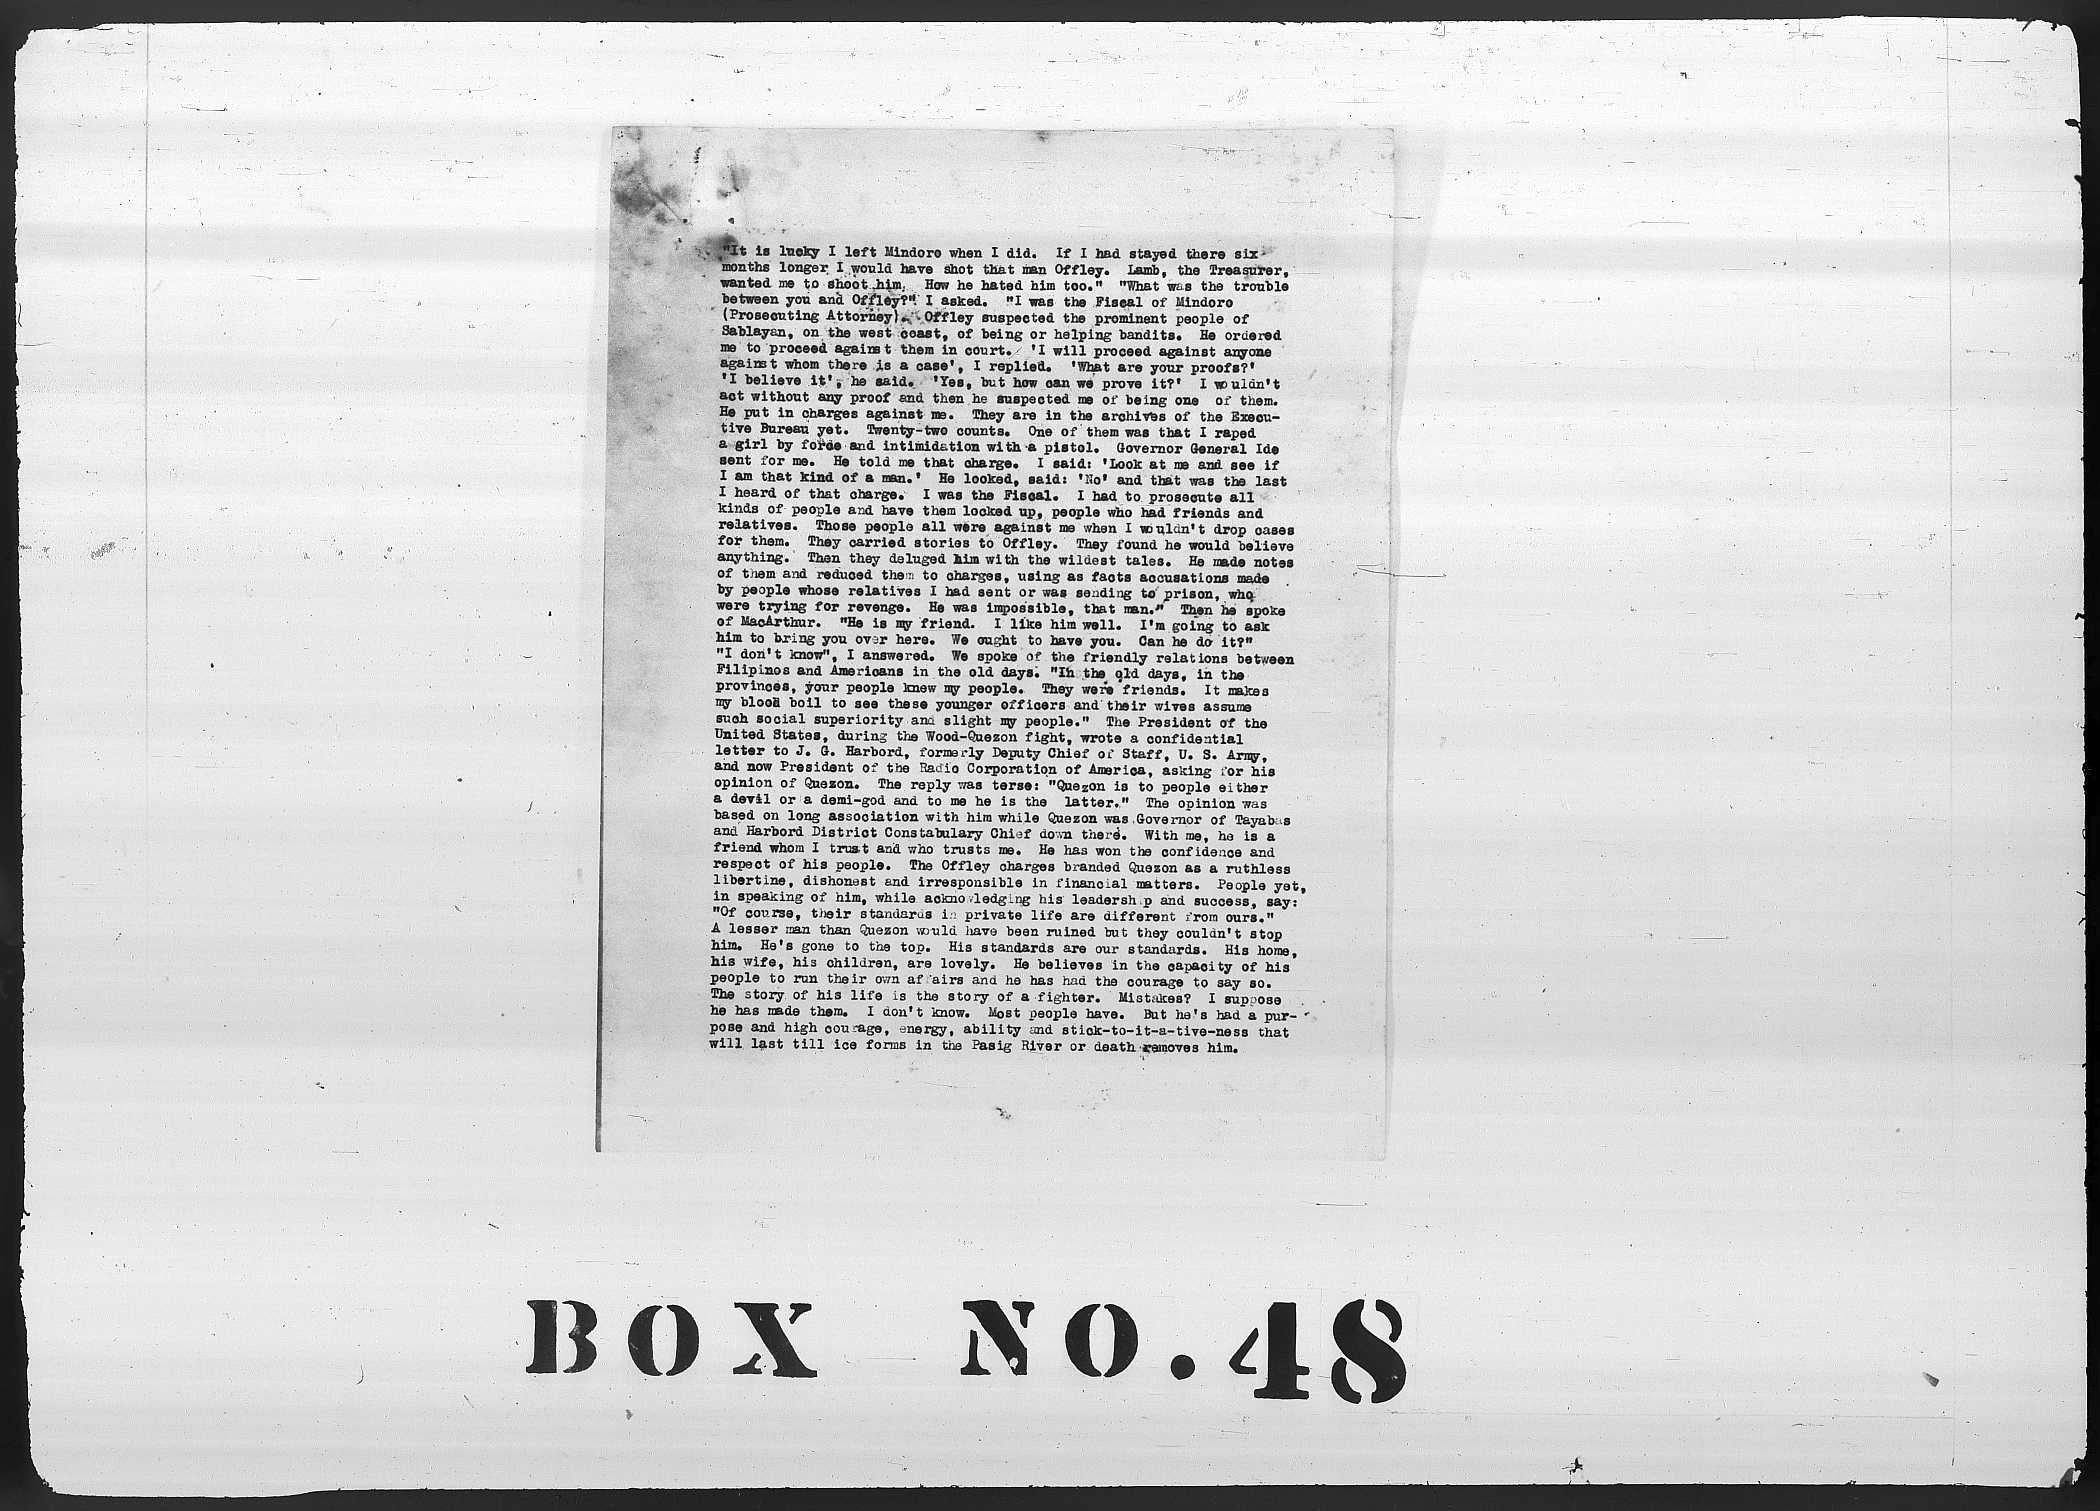 "It is lucky I left Mindoro when I did. If I had stayed there six
months longer I would have shot that man Offley. Lamb, the Treasurer,
wanted me to shoot him. How he hated him too." "What was the trouble
between you and Offley?" I asked. "I was the Fiscal of Mindoro
(Prosecuting Attorney). Offley suspected the prominent people of
Sablayan, on the west coast, of being or helping bandits. He ordered
me to proceed against them in court. 'I will proceed against anyone
against whom there is a case', I replied. 'What are your proofs?'
'I believe it', he said. 'Yes, but how can we prove it?' I wouldn't
act without any proof and then he suspected me of being one of them.
He put in charges against me. They are in the archives of the Execu-
tive Bureau yet. Twenty-two counts. One of them was that I raped
a girl by force and intimidation with a pistol. Governor General Ide
sent for me. He told me that charge. I said: 'Look at me and see if
I am that kind of a man.' He looked, said: 'No' and that was the last
I heard of that charge. I was the Fiscal. I had to prosecute all
kinds of people and have them locked up, people who had friends and
relatives. Those people all were against me when I wouldn't drop cases
for them. They carried stories to Offley. They found he would believe
anything. Then they deluged him with the wildest tales. He made notes
of them and reduced them to charges, using as facts accusations made
by people whose relatives I had sent or was sending to prison, who
were trying for revenge. He was impossible, that man." Then he spoke
of MacArthur. "He is my friend. I like him well. I'm going to ask
him to bring you over here. We ought to have you. Can he do it?"
"I don't know", I answered. We spoke of the friendly relations between
Filipinos and Americans in the old days. "In the old days, in the
provinces, your people knew my people. They were friends. It makes
my blood boil to see these younger officers and their wives assume
such social superiority and slight my people." The President of the
United States, during the Wood-Quezon fight, wrote a confidential
letter to J. G. Harbord, formerly Deputy Chief of Staff, U. S. Army,
and now President of the Radio Corporation of America, asking for his
opinion of Quezon. The reply was terse: "Quezon is to people either
a devil or a demi-god and to me he is the latter." The opinion was
based on long association with him while Quezon was Governor of Tayabas
and Harbord District Constabulary Chief down there. With me, he is a
friend whom I trust and who trusts me. He has won the confidence and
respect of his people. The Offley charges branded Quezon as a ruthless
libertine, dishonest and irresponsible in financial matters. People yet,
in speaking of him, while acknowledging his leadership and success, say:
"Of course, their standards in private life are different from ours."
A lesser man than Quezon would have been ruined but they couldn't stop
him. He's gone to the top. His standards are our standards. His home,
his wife, his children, are lovely. He believes in the capacity of his
people to run their own affairs and he has had the courage to say so.
The story of his life is the story of a fighter. Mistakes? I suppose
he has made them. I don't know. Most people have. But he's had a pur-
pose and high courage, energy, ability and stick-to-it-a-tive-ness that
will last till ice forms in the Pasig River or death removes him.
BOX NO. 48